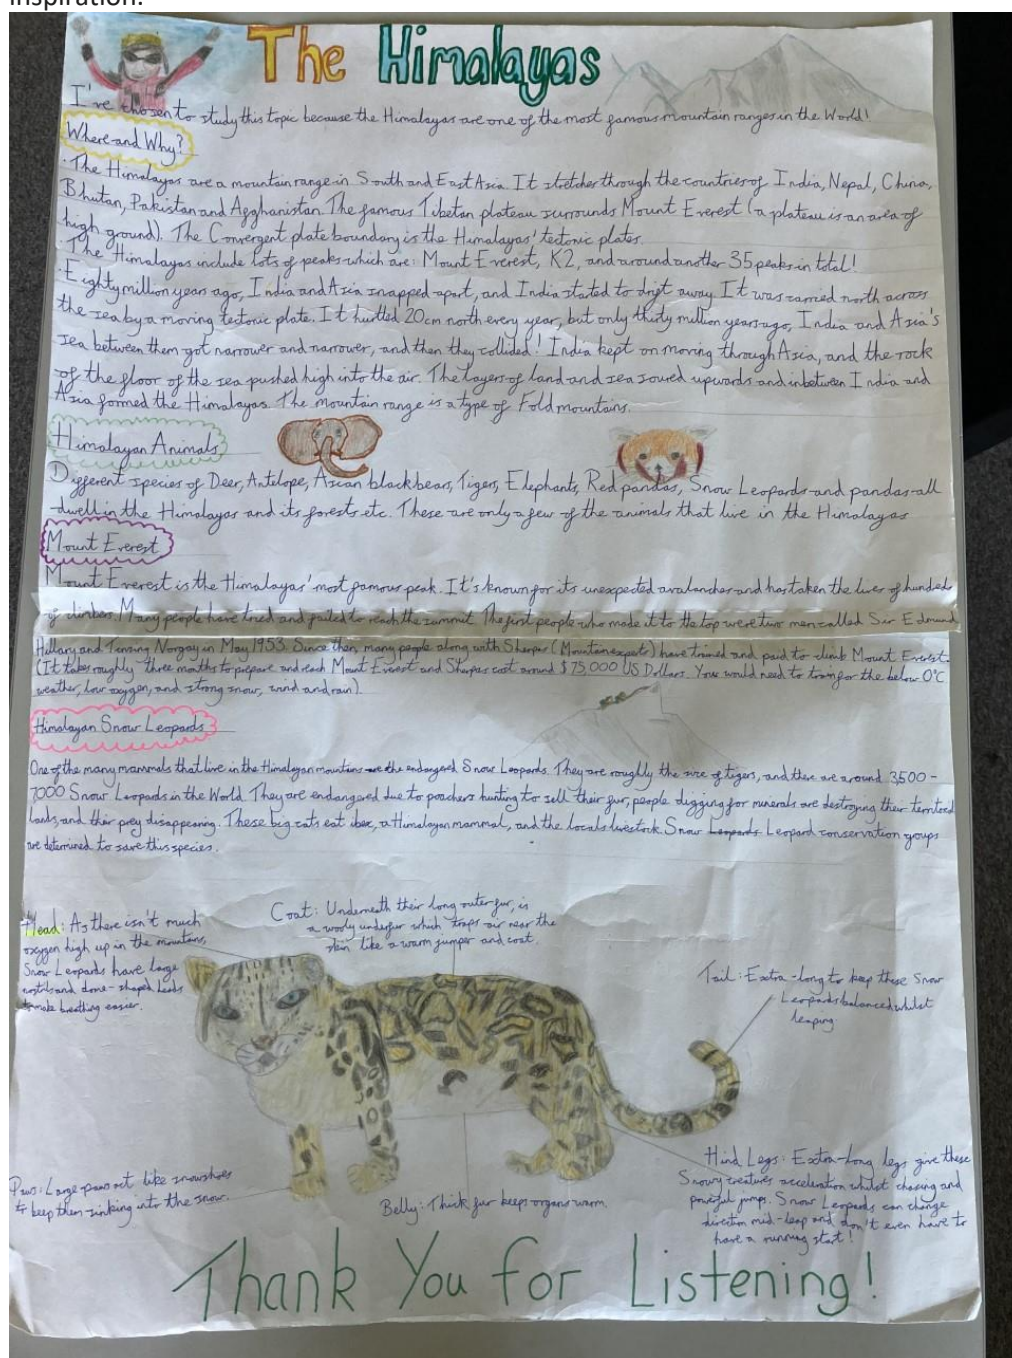 inspiration.
The Himalayas
I've chosen to study this topic because the Himalayas are one of the most famous mountain ranges in the World!
Where and Why?
·The Himalayas are a mountain range in South and East Asia. It stretches through the countries of India, Nepal, China,
Bhutan, Pakistan and Afghanistan. The famous Tibetan plateau surrounds Mount Everest (a plateau is an area of
high ground). The Convergent plate boundary is the Himalayas' tectonic plates.
·The Himalayas include lots of peaks which are: Mount Everest, K2, and around another 35 peaks in total!
·Eighty million years ago, India and Asia snapped apart, and India started to drift away. It was carried north across
the sea by a moving tectonic plate. It hurtled 20cm north every year, but only thirty million years ago, India and Asia's
sea between them got narrower and narrower, and then they collided! India kept on moving through Asia, and the rock
of the floor of the sea pushed high into the air. The layers of land and sea soured upwards and inbetween India and
Asia formed the Himalayas. The mountain range is a type of Fold mountains.
Himalayan Animals
Different species of Deer, Antelope, Asian black bears, Tigers, Elephants, Red pandas, Snow Leopards and pandas all
dwell in the Himalayas and its forests etc. These are only a few of the animals that live in the Himalayas
Mount Everest
Mount Everest is the Himalayas' most famous peak. It's known for its unexpected avalanches and has taken the lives of hundred
of climbers. Many people have tried and failed to reach the summit. The first people who made it to the top were two men called Sir Edmund
Hillary and Tenzing Norgay in May 1953. Since then, many people along with Sherpas (Mountain experts) have trained and paid to climb Mount Everest.
(It takes roughly three months to prepare and reach Mount Everest and Sherpas cost around $75,000 US Dollars. You would need to train for the below 0°C
weather, low oxygen, and strong snow, wind and rain).
Himalayan Snow Leopards
One of the many mammals that live in the Himalayan mountains are the endangered Snow Leopards. They are roughly the size of tigers, and there are around 3,500 -
7000 Snow Leopards in the World. They are endangered due to poachers hunting to sell their fur, people digging for minerals are destroying their
lands, and their prey disappearing. These big cats eat ibex, a Himalayan mammal, and the locals livestock. Snow Leopards Leopard conservation groups
are determined to save this species.
Head: As there isn't much
oxygen high up in the mountains,
Snow Leopards have large
nostrils and dome-shaped heads
to make breathing easier.
Coat: Underneath their long outer fur, is
a wooly underfur which traps air near the
skin like a warm jumper and coat.
Tail: Extra-long to keep these Snow
Leopards balanced whilst
leaping.
Paws: Large paws act like snowshoes
to keep them sinking into the snow.
Belly: Thick fur keeps organs warm.
Hind Legs: Extra-long legs give these
Snowy creatures acceleration whilst chasing and
powerful jumps. Snow Leopards can change
direction mid-leap and don't even have to
have a running start!
Thank You for Listening!